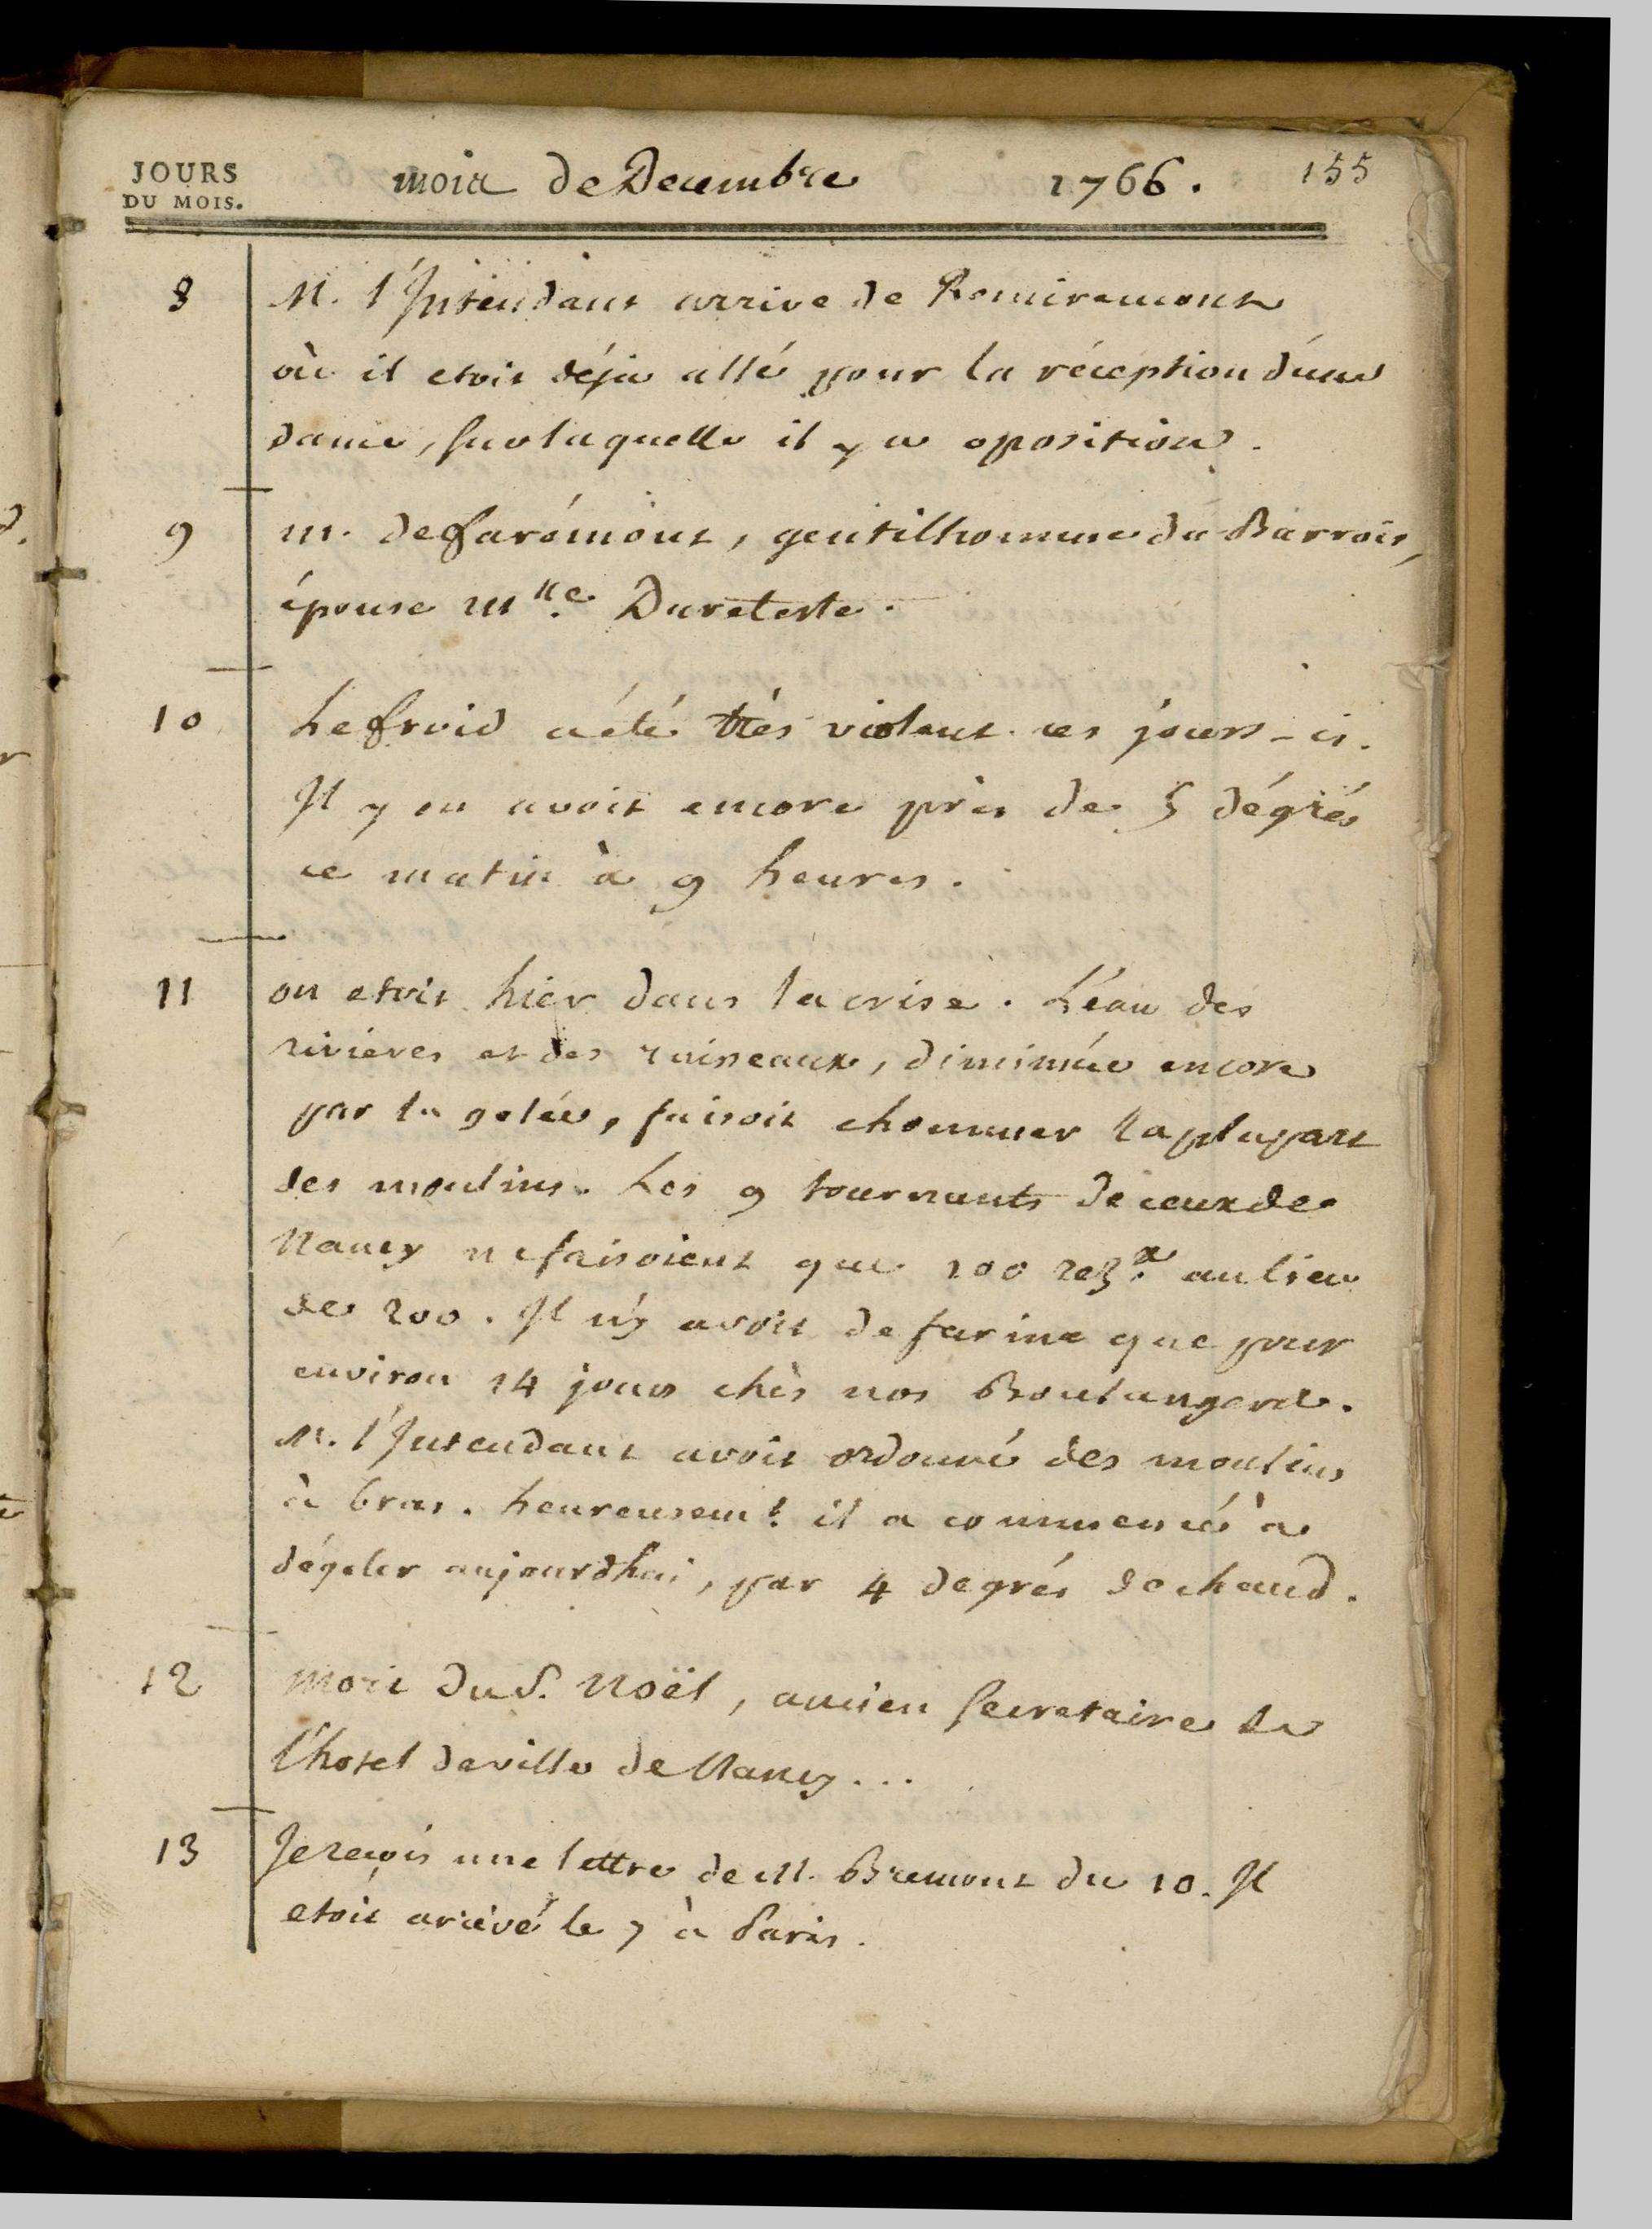 JOURS
DU MOIS.
mois de Decembre 1766. 155
8 M. l'Intendant arrive de Remiremont
où il etoit déja allé pour la réception d'une
dame, sur laquelle il y a oposition.
9 m. de farémont, gentilhomme du Barrois,
épouse mlle. Dureteste.
10 Le froid a été très violent ces jours-ci.
Il y en avoit encore près de 5 dégrés
ce matin à 9 heures.
11 on etoit hier dans la crise. L'eau des
rivieres et des ruisseaux, diminuée encore
par la gelée, faisoit chommer la plupart
des moulins. Les 9 tournants de ceux de
Nancy ne faisoient que 100 rezx. au lieu
de 200. Il n'y avoit de farine que pour
environ 14 jours chès nos Boulangers.
M. l'Intendant avoit ordonné des moulins
à bras. heureusemt. il a commencé à
dégeler aujourdhui, par 4 degrés de chaud.
12 Mort du S. Noël, ancien Secretaire de
l'hotel de ville de Nancy...
13 Je reçois une lettre de M. Bremont du 10. Il
etoit arrivé le 7 à Paris.